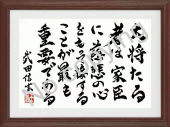 大将たる
者は家臣
に慈悲の心
をもって接する
ことが最も
重要である
武田信玄